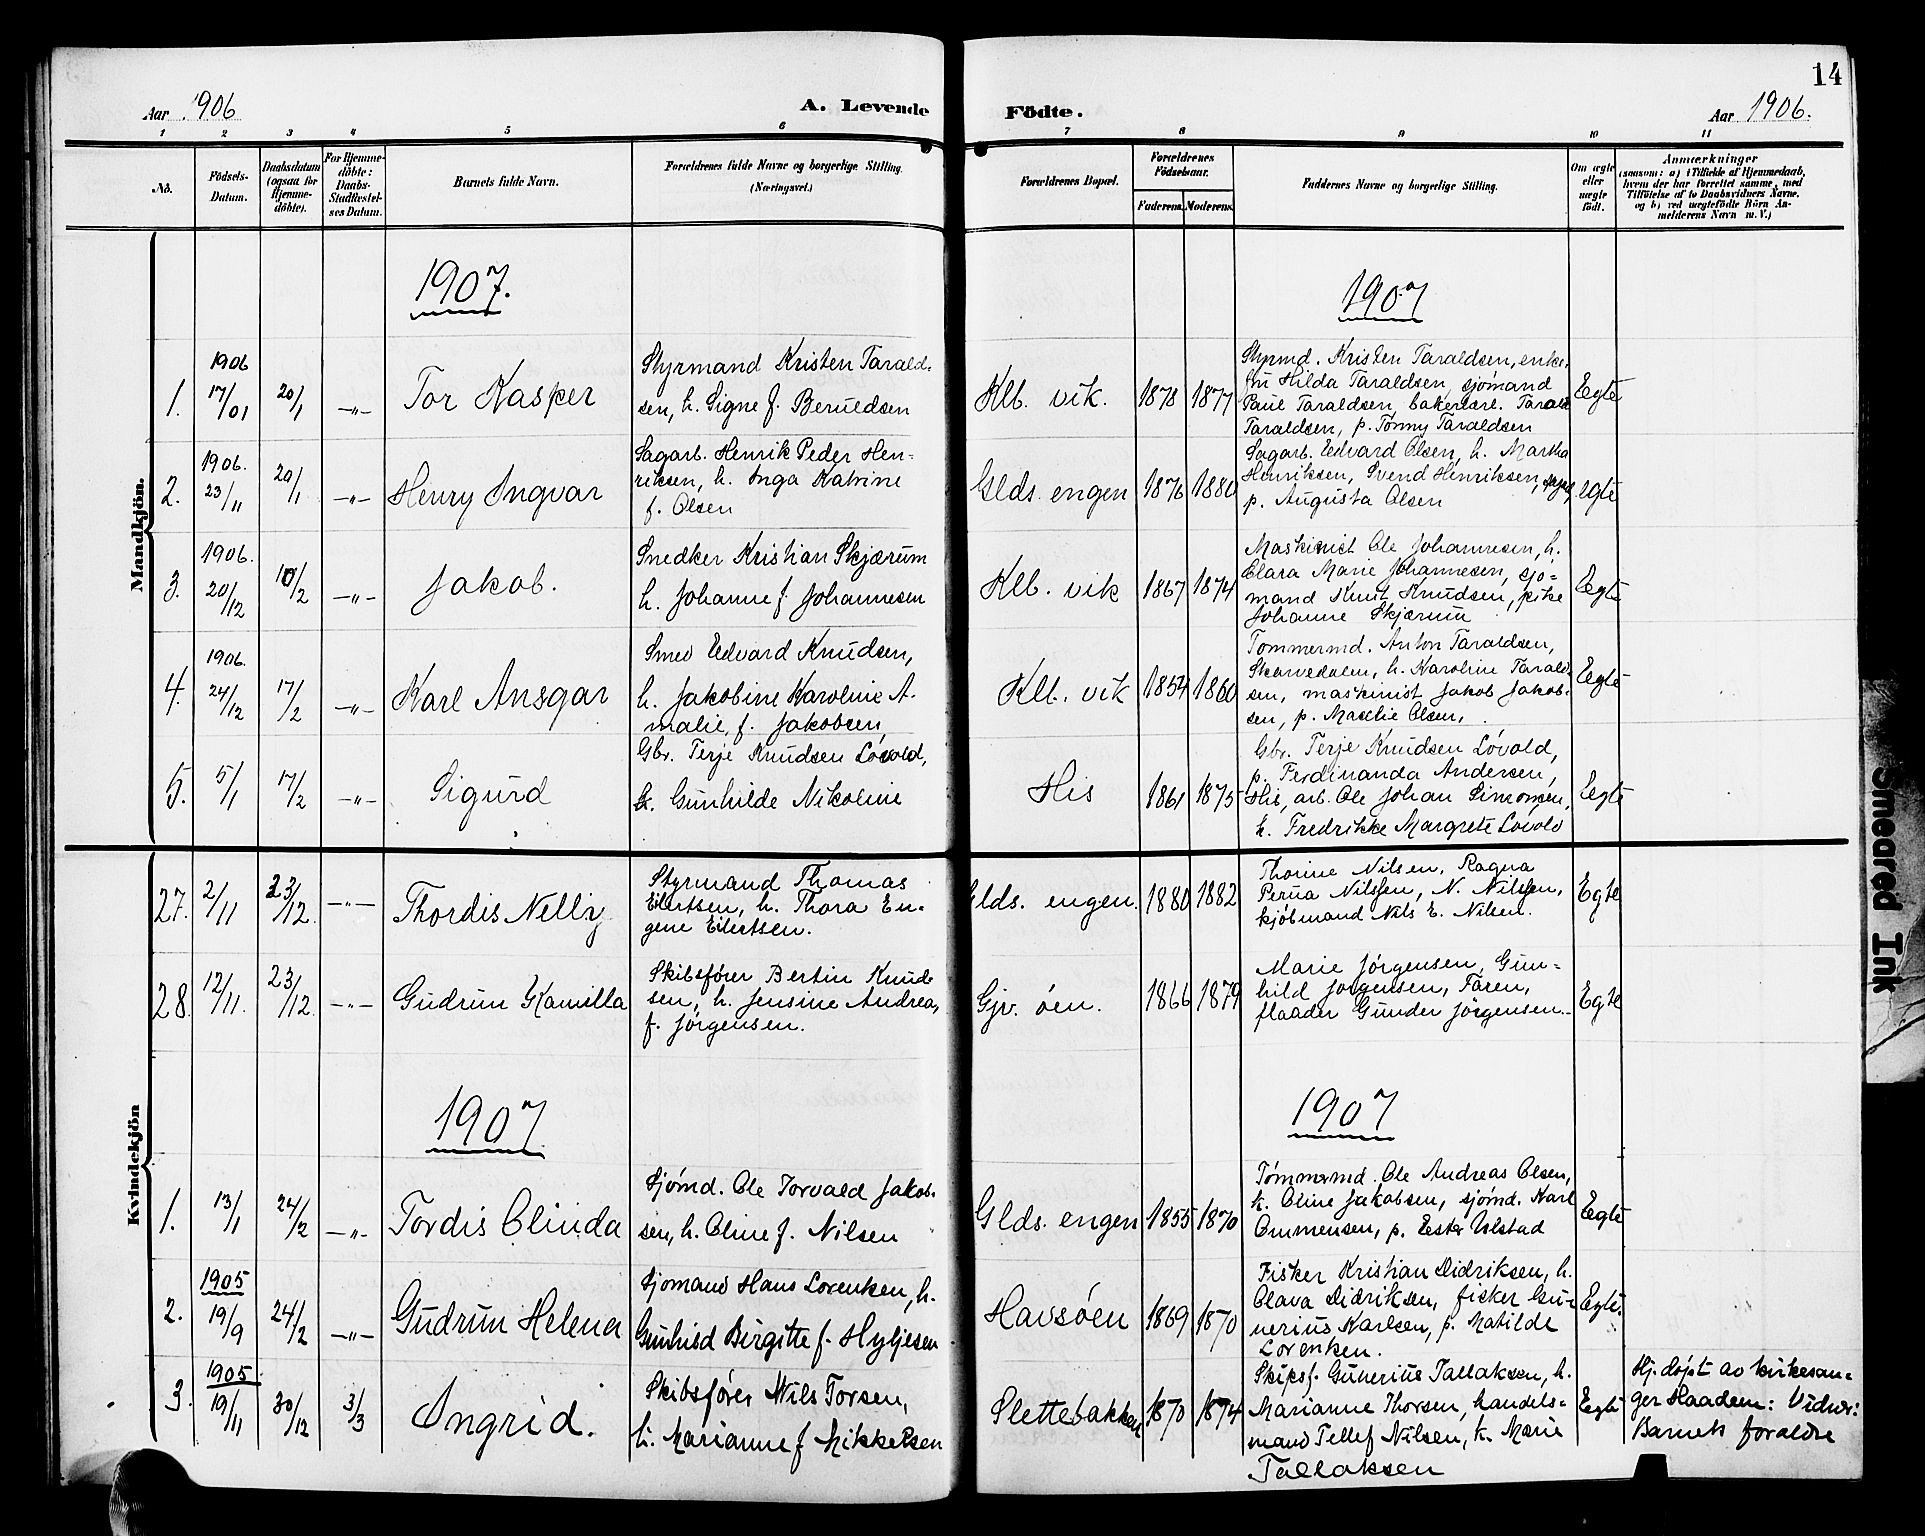 14
Aar 1906
A. Levende Födte.
Aar 1906.
1 2 3 4 5 6 7 8 9 10 11
No.
Födsels-
Datum.
Daabsdatum
(ogsaa for
Hjemme-
döbte).
For Hjemme-
döbte:
Daabs-
Stadfæstel-
ses Datum.
Barnets fulde Navn.
Forældrenes fulde Navne og borgerlige Stilling.
(Næringsvei.)
Forældrenes Bopæl.
Forældrenes
Födselsaar.
Faderens. Moderens.
Faddernes Navne og borgerlige Stilling.
Om ægte
eller
uægte
födt.
Anmærkninger
(saasom: a) i Tilfælde af Hjemmedaab,
hvem der har forrettet samme, med
Tilföielse af to Daabsvidners Navne.
og b) ved uægtefödte Börn An-
melderens Navn m. V.)
Mandkjön.
1907.
1907
1.
1906
17/01
20/1
-„-
Tor Kasper
Styrmand Kristen Tarald-
sen, h. Signe f. Beruldsen
Klb. vik.
1878
1877
Styrmd. Kristen Taraldsen, enke-
fru Hilda Taraldsen, sjømand
Paul Taraldsen, bakerlærl. Tarald
Taraldsen, p. Tonny Taraldsen
Egte
2.
1906.
23/11
20/1
-„-
Henry Ingvar
Sagarb. Henrik Peder Hen-
riksen, h. Inga Katrine
f. Olsen
Glds. engen
1876
1880
Sagarb. Edvard Olsen, h. Martha
Henriksen, Svend Henriksen,
p. Augusta Olsen
egte
3.
1906.
20/12
10/2
-„-
Jakob.
Snedker Kristian Skjærum
h. Johanne f. Johannesen
Klb. vik
1867
1874
Maskinist Ole Johannesen, h.
Clara Marie Johannesen, sjø-
mand Knut Knudsen, pike
Johanne Skjærum
Egte
4.
1906.
24/12
17/2
-„-
Karl Ansgar
Smed Edvard Knudsen,
h. Jakobine Karoline A-
malie, f. Jakobsen,
Klb. vik
1854
1860
Tømmermd. Anton Taraldsen,
Skarvedalen, h. Karoline Tarald-
sen, maskinist Jakob Jakob-
sen, p. Maelie Olsen.
Egte
5.
5/1
17/2
-„-
Sigurd
Gbr. Terje Knudsen Løvold,
h. Gunhilde Nikoline
His
1861
1875
Gbr. Terje Knudsen Løvold,
p. Ferdinanda Andersen,
His, arb. Ole Johan Simonsen,
h. Fredrikke Margrete Løvold
Egte
Kvindekjön
27.
2/11
23/12.
-„-
Thordis Nelly
Styrmand Thomas
Eilertsen, h. Thora Eu-
gene Eilertsen.
Glds. engen.
1880
1882
Thorine Nilsen, Ragna
Perua Nilssen, N. Nilssen,
kjøbmand Nils E. Nilsen.
Egte
28.
12/11.
23/12.
-„-
Gudrun Kamilla
Skibsfører Bertin Knud-
sen, h. Jensine Andrea,
f. Jørgensen.
Gjv. øen.
1866
1879
Marie Jørgensen, Gun-
hild Jørgensen, Faren,
flaader Gunder Jørgensen.
Egte
1907
1907
1.
13/1
24/2
-„-
Tordis Olinda
Sjømd. Ole Torvald Jakob-
sen, h. Oline f. Nilsen
Glds. engen
1855
1870
Tømmermd. Ole Andreas Olsen,
k. Oline Jakobsen, sjømd. Karl
Ommensen, p. Ester Ulstad
Egte
2.
1905
19/9
24/2
-„-
Gudrun Helena
Sjømand Hans Lorenken, h.
Gunhild Birgitte f. Hyljesen
Havsøen
1869
1870
Fisker Kristian Didriksen, h.
Olava Didriksen, fisker Gu-
nerius Karlsen, p. Matilde
Lorenken.
Egte.
3.
1905.
19/11
30/12
3/3
Ingrid.
Skibsfører Nils Torsen,
h. Marianne f Mikkelsen
Slettebakken
1870
1874
Skipsf. Gunerius Tallaksen, h.
Marianne Thorsen, handels-
mand Tellef Nilsen, k. Marie
Tallaksen
Egte
Hj. døpt av kirkesan-
ger Haadem: Vidner:
Barnets foraldre
Smeared Ink